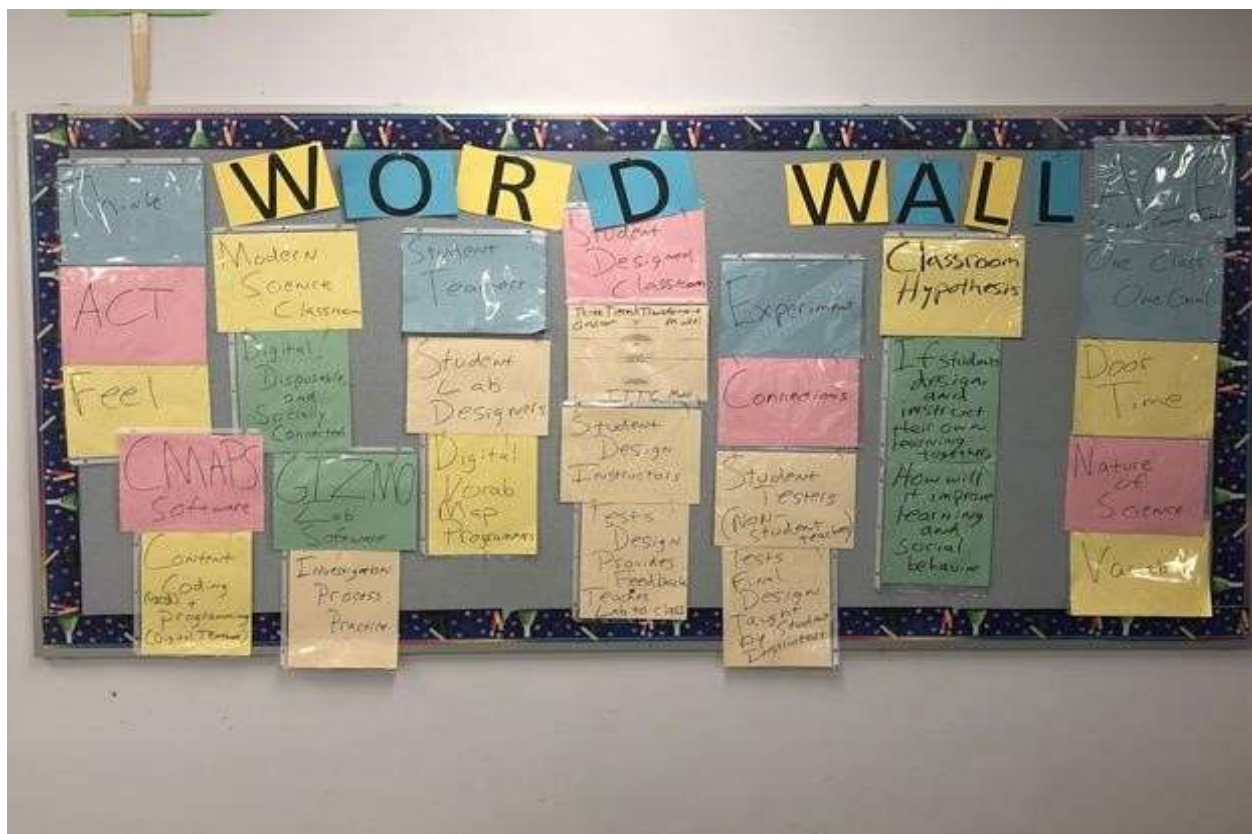 WORD WALL
Think
ACT
Feel
CMAPS
Software
Content
Coding
+
programming
Modern
Science
Classroom
Digital
Disposable
and
Socially
Connected
GIZMO
Lab
Software
Investigation
Process
Practice
Student
Teachers
Student
Lab
Designers
Digital
Vocab
Map
Programmers
Student
Designed
Classroom
Model
Student
Design
Instructors
Tests
Design
Provides
Feedback
Teaches
Lab to class
Experiment
Connections
Student
Testers
(Non-
student
teachers)
Tests
Final
Design
Taught
by Student
Instructors
Classroom
Hypothesis
If students
design
and
instruct
their own
learning
together
How will
it improve
learning
and
social
behavior
ACE
One Class
One Goal
Door
Time
Nature
of
Science